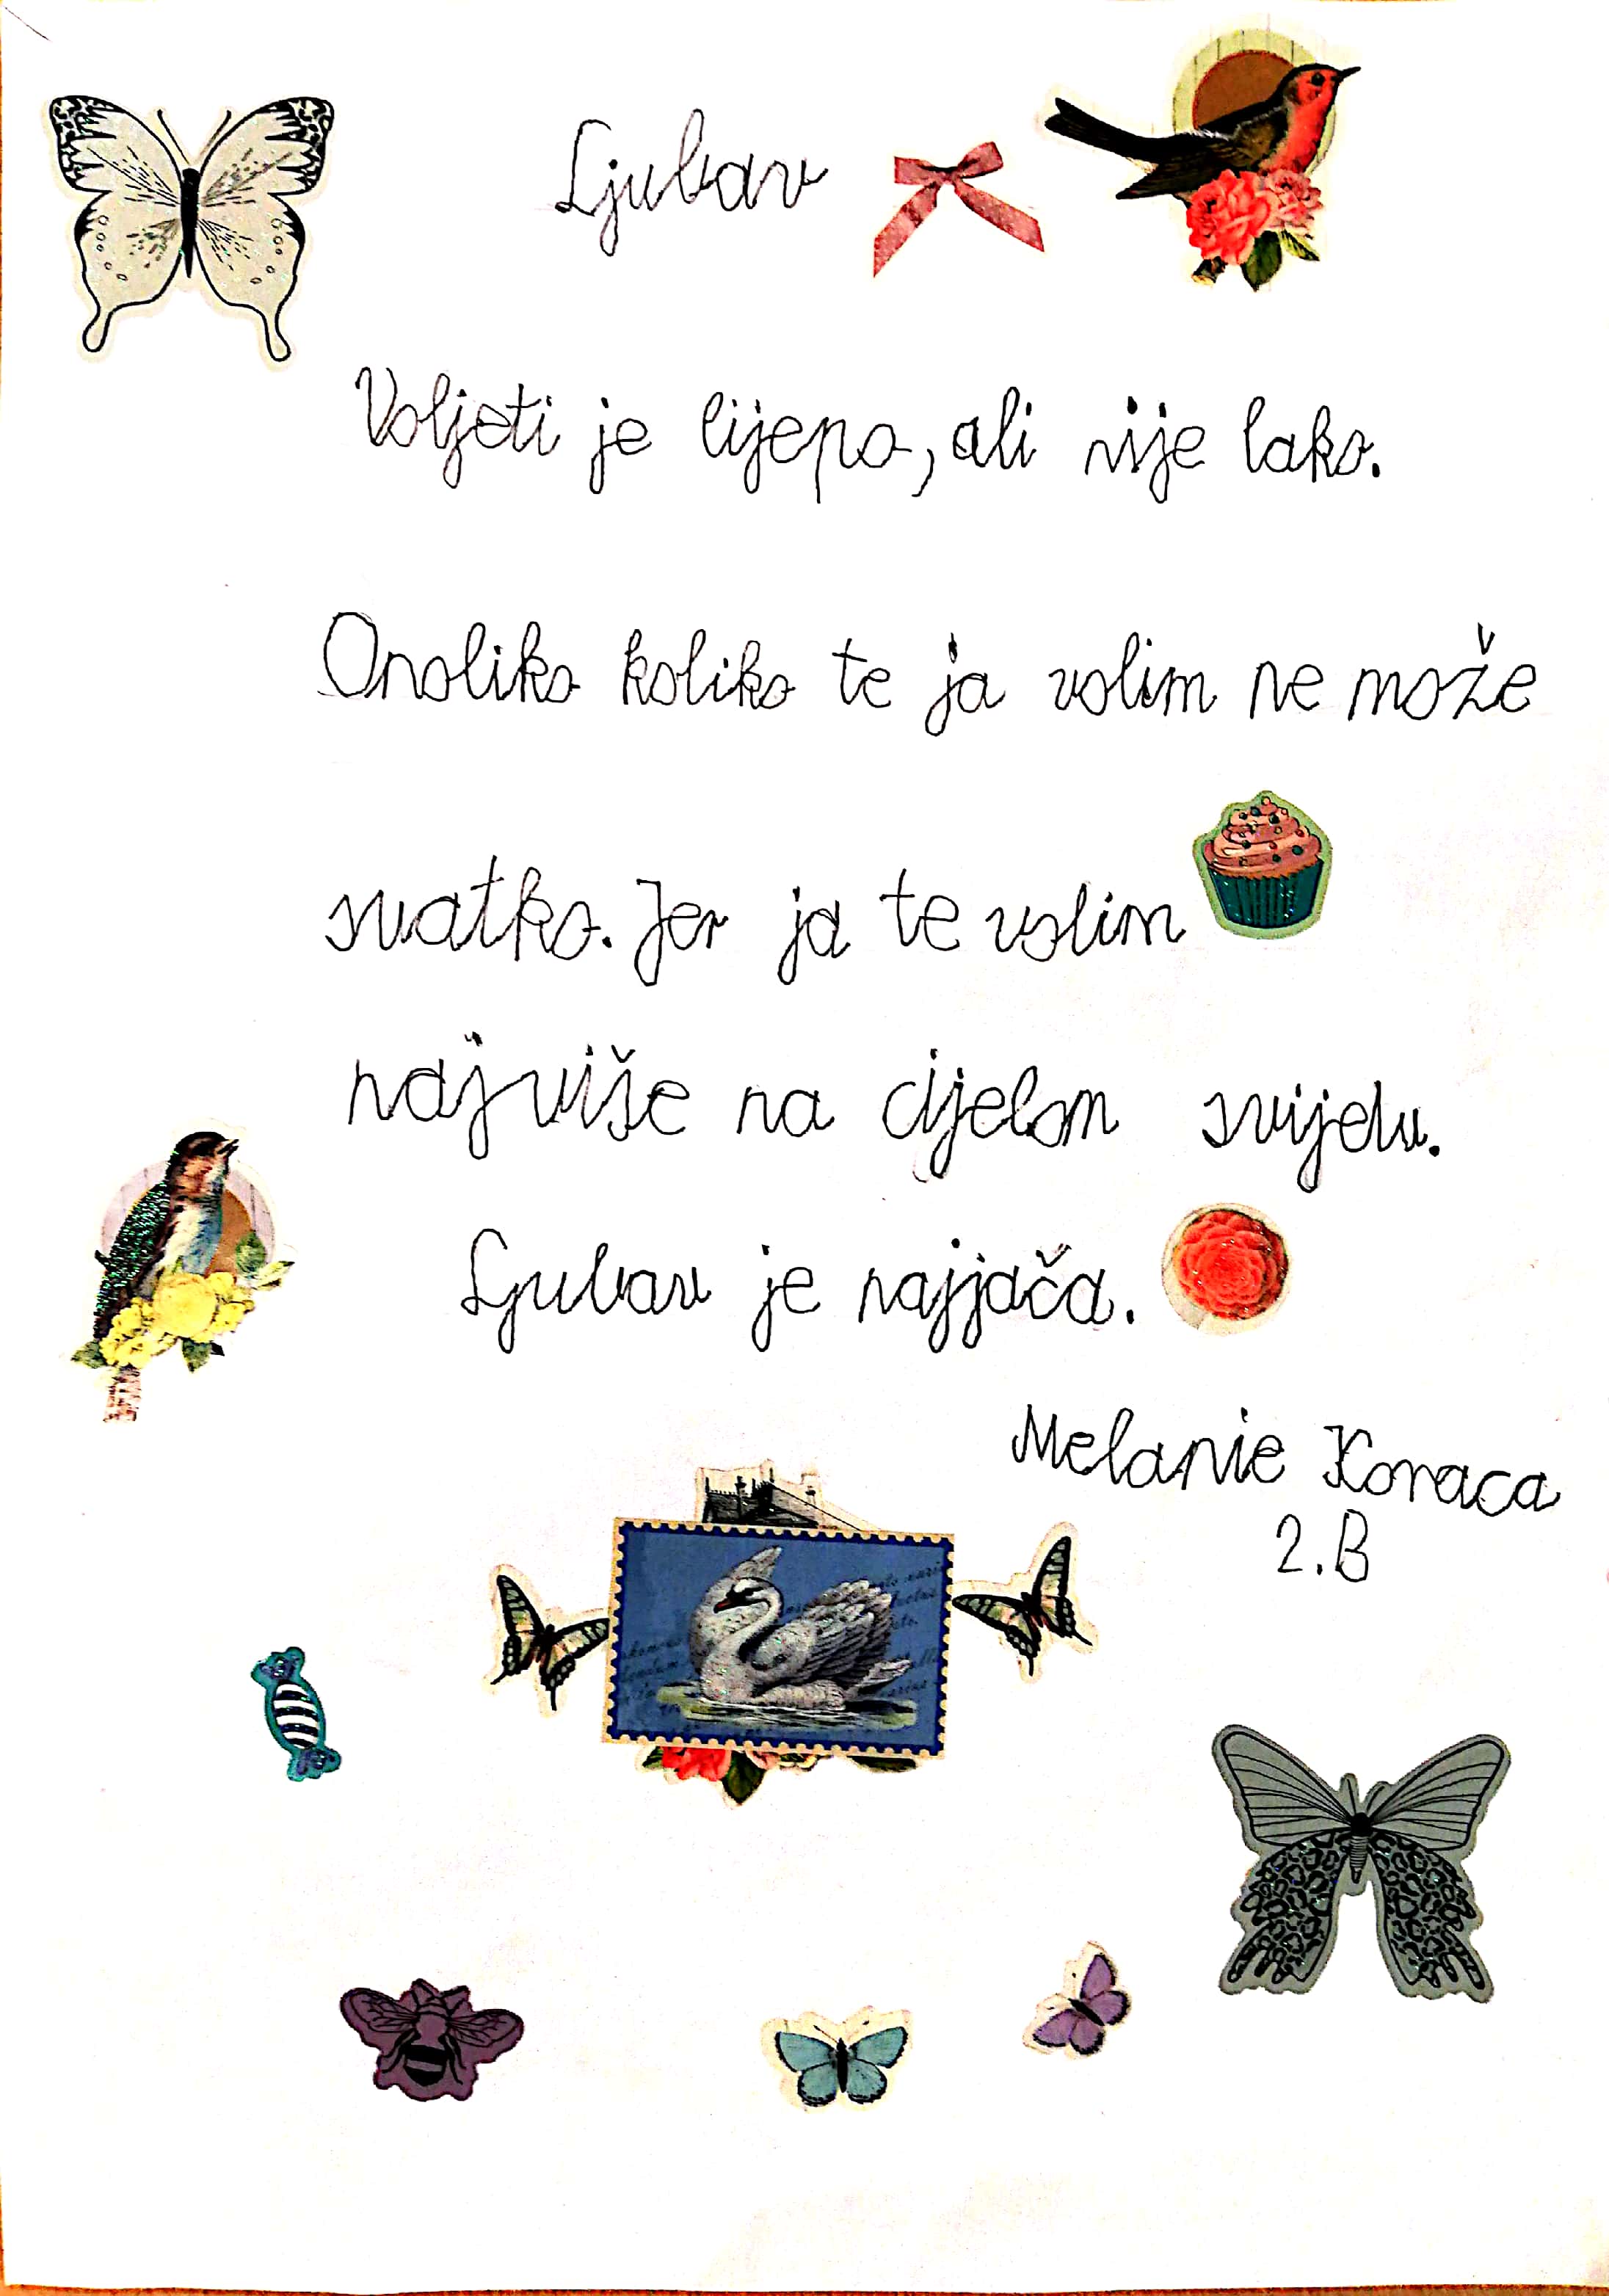 Ljubav
Voljeti je lijepo, ali nije lako.
Onoliko koliko te ja volim ne može
svatko. Jer ja te volim
najviše na cijelom svijetu.
Ljubav je najjača.
Melanie Koraca
2.B